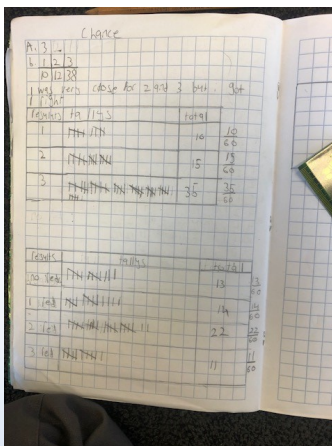 Chance
A. 3
b. 1 2 3
10 12 38
I was very close for 2 and 3 but got
1 right
results tallys total
1 10 10/60
2 15 15/60
3 35 35/60
results tallys total
no red 13 13/60
1 red 14 14/60
2 red 22 22/60
3 red 11 11/60